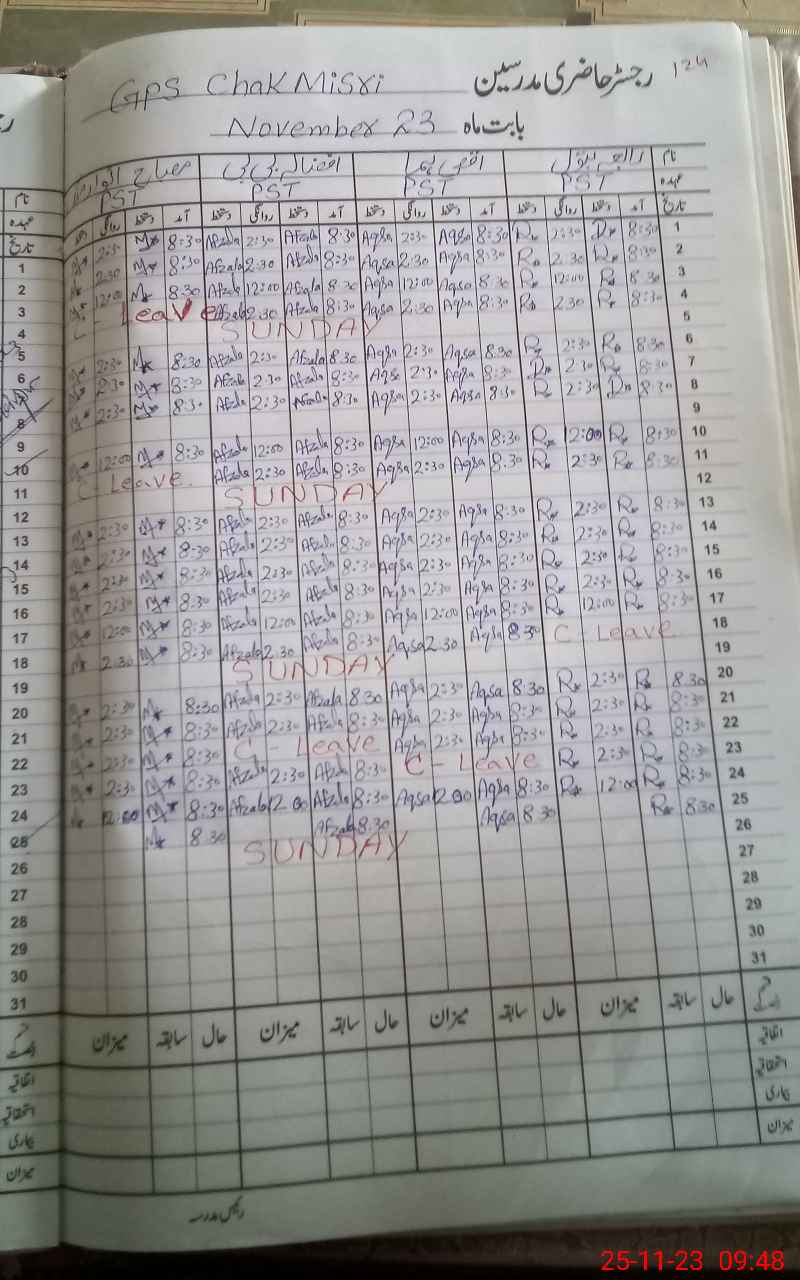 رجسٹر حاضری مدرسین GPS Chak Misri 124
بابت ماہ November 23
نام رابعہ بتول اقصیٰ افضالہ بی بی مصباح
عہدہ PST PST PST PST
تاریخ آمد دستخط روانگی دستخط آمد دستخط روانگی دستخط آمد دستخط روانگی دستخط آمد دستخط روانگی دستخط
2:30 8:30 Afzala 2:30 Afzala 8:30 Aqsa 2:30 Aqsa 8:30 2:30 8:30 1
2:30 8:30 Afzala 2:30 Afzala 8:30 Aqsa 2:30 Aqsa 8:30 2:30 8:30 2
12:00 8:30 Afzala 12:00 Afzala 8:30 Aqsa 12:00 Aqsa 8:30 12:00 8:30 3
C - Leave Afzala 2:30 Afzala 8:30 Aqsa 2:30 Aqsa 8:30 2:30 8:30 4
SUNDAY 5
2:30 8:30 Afzala 2:30 Afzala 8:30 Aqsa 2:30 Aqsa 8:30 2:30 8:30 6
2:30 8:30 Afzala 2:30 Afzala 8:30 Aqsa 2:30 Aqsa 8:30 2:30 8:30 7
2:30 8:30 Afzala 2:30 Afzala 8:30 Aqsa 2:30 Aqsa 8:30 2:30 8:30 8
9
12:00 8:30 Afzala 12:00 Afzala 8:30 Aqsa 12:00 Aqsa 8:30 12:00 8:30 10
C - Leave Afzala 2:30 Afzala 8:30 Aqsa 2:30 Aqsa 8:30 2:30 8:30 11
SUNDAY 12
2:30 8:30 Afzala 2:30 Afzala 8:30 Aqsa 2:30 Aqsa 8:30 2:30 8:30 13
2:30 8:30 Afzala 2:30 Afzala 8:30 Aqsa 2:30 Aqsa 8:30 2:30 8:30 14
2:30 8:30 Afzala 2:30 Afzala 8:30 Aqsa 2:30 Aqsa 8:30 2:30 8:30 15
2:30 8:30 Afzala 2:30 Afzala 8:30 Aqsa 2:30 Aqsa 8:30 2:30 8:30 16
12:00 8:30 Afzala 12:00 Afzala 8:30 Aqsa 12:00 Aqsa 8:30 12:00 8:30 17
2:30 8:30 Afzala 2:30 Afzala 8:30 Aqsa 2:30 Aqsa 8:30 C - Leave 18
SUNDAY 19
2:30 8:30 Afzala 2:30 Afzala 8:30 Aqsa 2:30 Aqsa 8:30 2:30 8:30 20
2:30 8:30 Afzala 2:30 Afzala 8:30 Aqsa 2:30 Aqsa 8:30 2:30 8:30 21
2:30 8:30 C - Leave Aqsa 2:30 Aqsa 8:30 2:30 8:30 22
2:30 8:30 Afzala 2:30 Afzala 8:30 C - Leave 2:30 8:30 23
12:00 8:30 Afzala 12:00 Afzala 8:30 Aqsa 12:00 Aqsa 8:30 12:00 8:30 24
8:30 Afzala 8:30 Aqsa 8:30 8:30 25
SUNDAY 26
27
28
29
30
31
حال سابقہ میزان حال سابقہ میزان حال سابقہ میزان حال سابقہ میزان
اتفاقیہ
استحقاقیہ
بیماری
میزان
رئیس مدرسہ
نام
عہدہ
تاریخ
1
2
3
4
5
6
7
8
9
10
11
12
13
14
15
16
17
18
19
20
21
22
23
24
25
26
27
28
29
30
31
اتفاقیہ
استحقاقیہ
بیماری
میزان
25-11-23 09:48